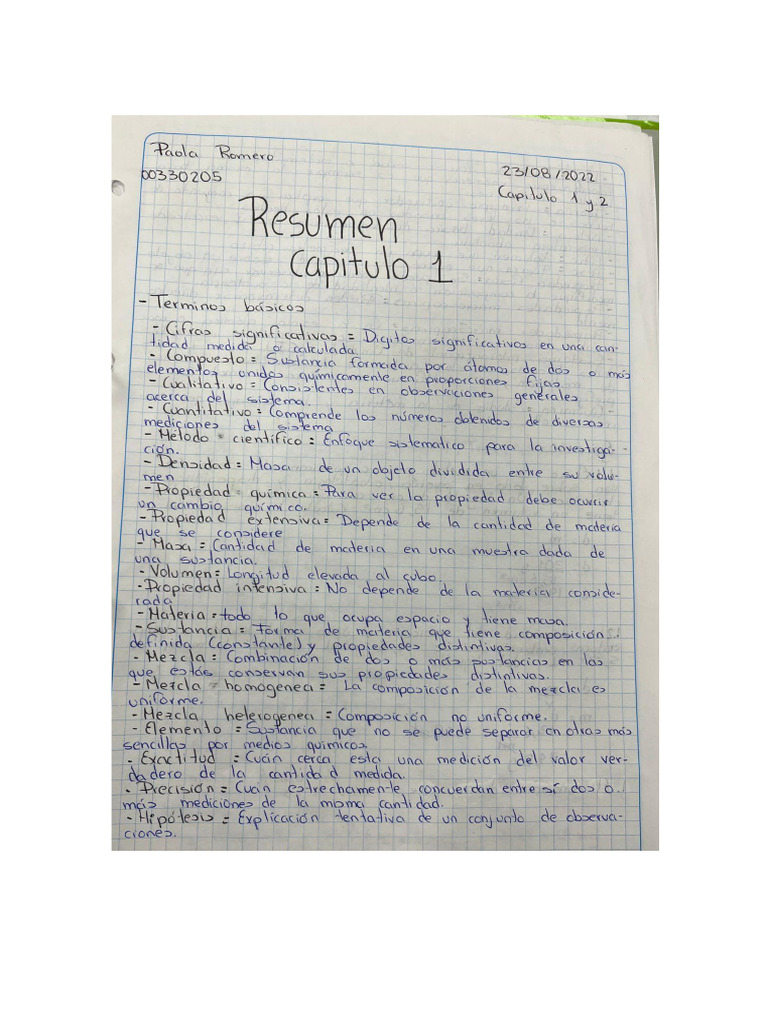 Paola Romero
23/08/2022
00330205
Capitulo 1 y 2
Resumen
Capitulo 1
- Terminos básicos
- Cifras significativas = Digitos significativos en una can-
tidad medida o calculada.
- Compuesto = Sustancia formada por átomos de dos o más
elementos unidos químicamente en proporciones fijas
- Cualitativo = Consistentes en observaciones generales
acerca del sistema.
- Cuantitativo = Comprende los números obtenidos de diversas
mediciones del sistema
- Método - científico = Enfoque sistematico para la investiga-
ción.
- Densidad = Masa de un objeto dividida entre su volu-
men
- Propiedad - química = Para ver la propiedad debe ocurrir
un cambio químico.
- Propiedad extensiva = Depende de la cantidad de materia
que se considere
- Masa = Cantidad de materia en una muestra dada de
una sustancia.
- Volumen = Longitud elevada al cubo.
- Propiedad intensiva = No depende de la materia conside-
rada
- Materia = todo lo que ocupa espacio y tiene masa.
- Sustancia = forma de materia que tiene composición
definida (constante) y propiedades distintivas.
- Mezcla = Combinación de dos o más sustancias en las
que estás conservan sus propiedades distintivas.
- Mezcla - homogenea = La composición de la mezcla es
uniforme.
- Mezcla heterogenea = Composición no uniforme.
- Elemento = Sustancia que no se puede separar en otras más
sencillas por medios quimicos.
- Exactitud = Cuán cerca esta una medición del valor ver-
dadero de la cantidad medida.
- Precisión = Cuán estrechamente concuerdan entre sí dos o
más mediciones de la misma cantidad.
- Hipótesis = Explicación tentativa de un conjunto de observa-
ciones.